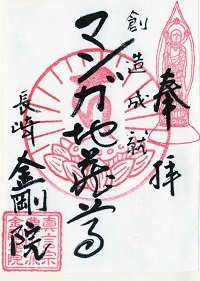 奉拝
創造成就
マンガ地蔵尊
長崎
金剛院